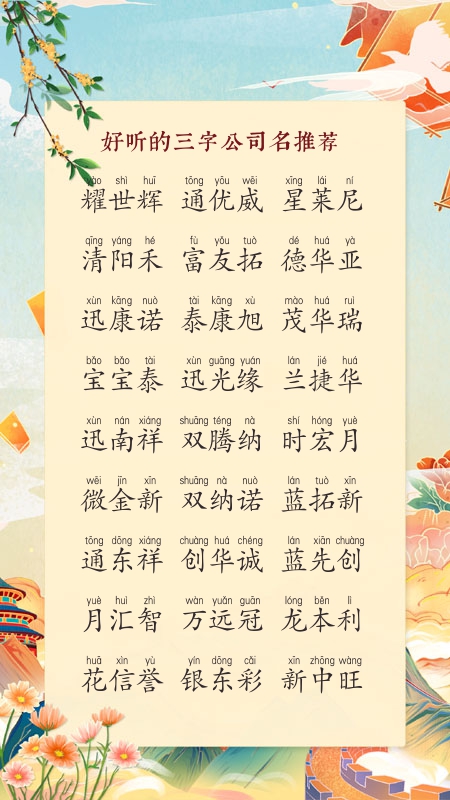 好听的三字公司名推荐
yào shì huī tōng yōu wēi xīng lái ní
耀世辉 通优威 星莱尼
qīng yáng hé fù yǒu tuò dé huá yà
清阳禾 富友拓 德华亚
xùn kāng nuò tài kāng xù mào huá ruì
迅康诺 泰康旭 茂华瑞
bǎo bǎo tài xùn guāng yuán lán jié huá
宝宝泰 迅光缘 兰捷华
xùn nán xiáng shuāng téng nà shí hóng yuè
迅南祥 双腾纳 时宏月
wēi jīn xīn shuāng nà nuò lán tuò xīn
微金新 双纳诺 蓝拓新
tōng dōng xiáng chuàng huá chéng lán xiān chuàng
通东祥 创华诚 蓝先创
yuè huì zhì wàn yuǎn guān lóng běn lì
月汇智 万远冠 龙本利
huā xìn yù yín dōng cǎi xīn zhōng wàng
花信誉 银东彩 新中旺